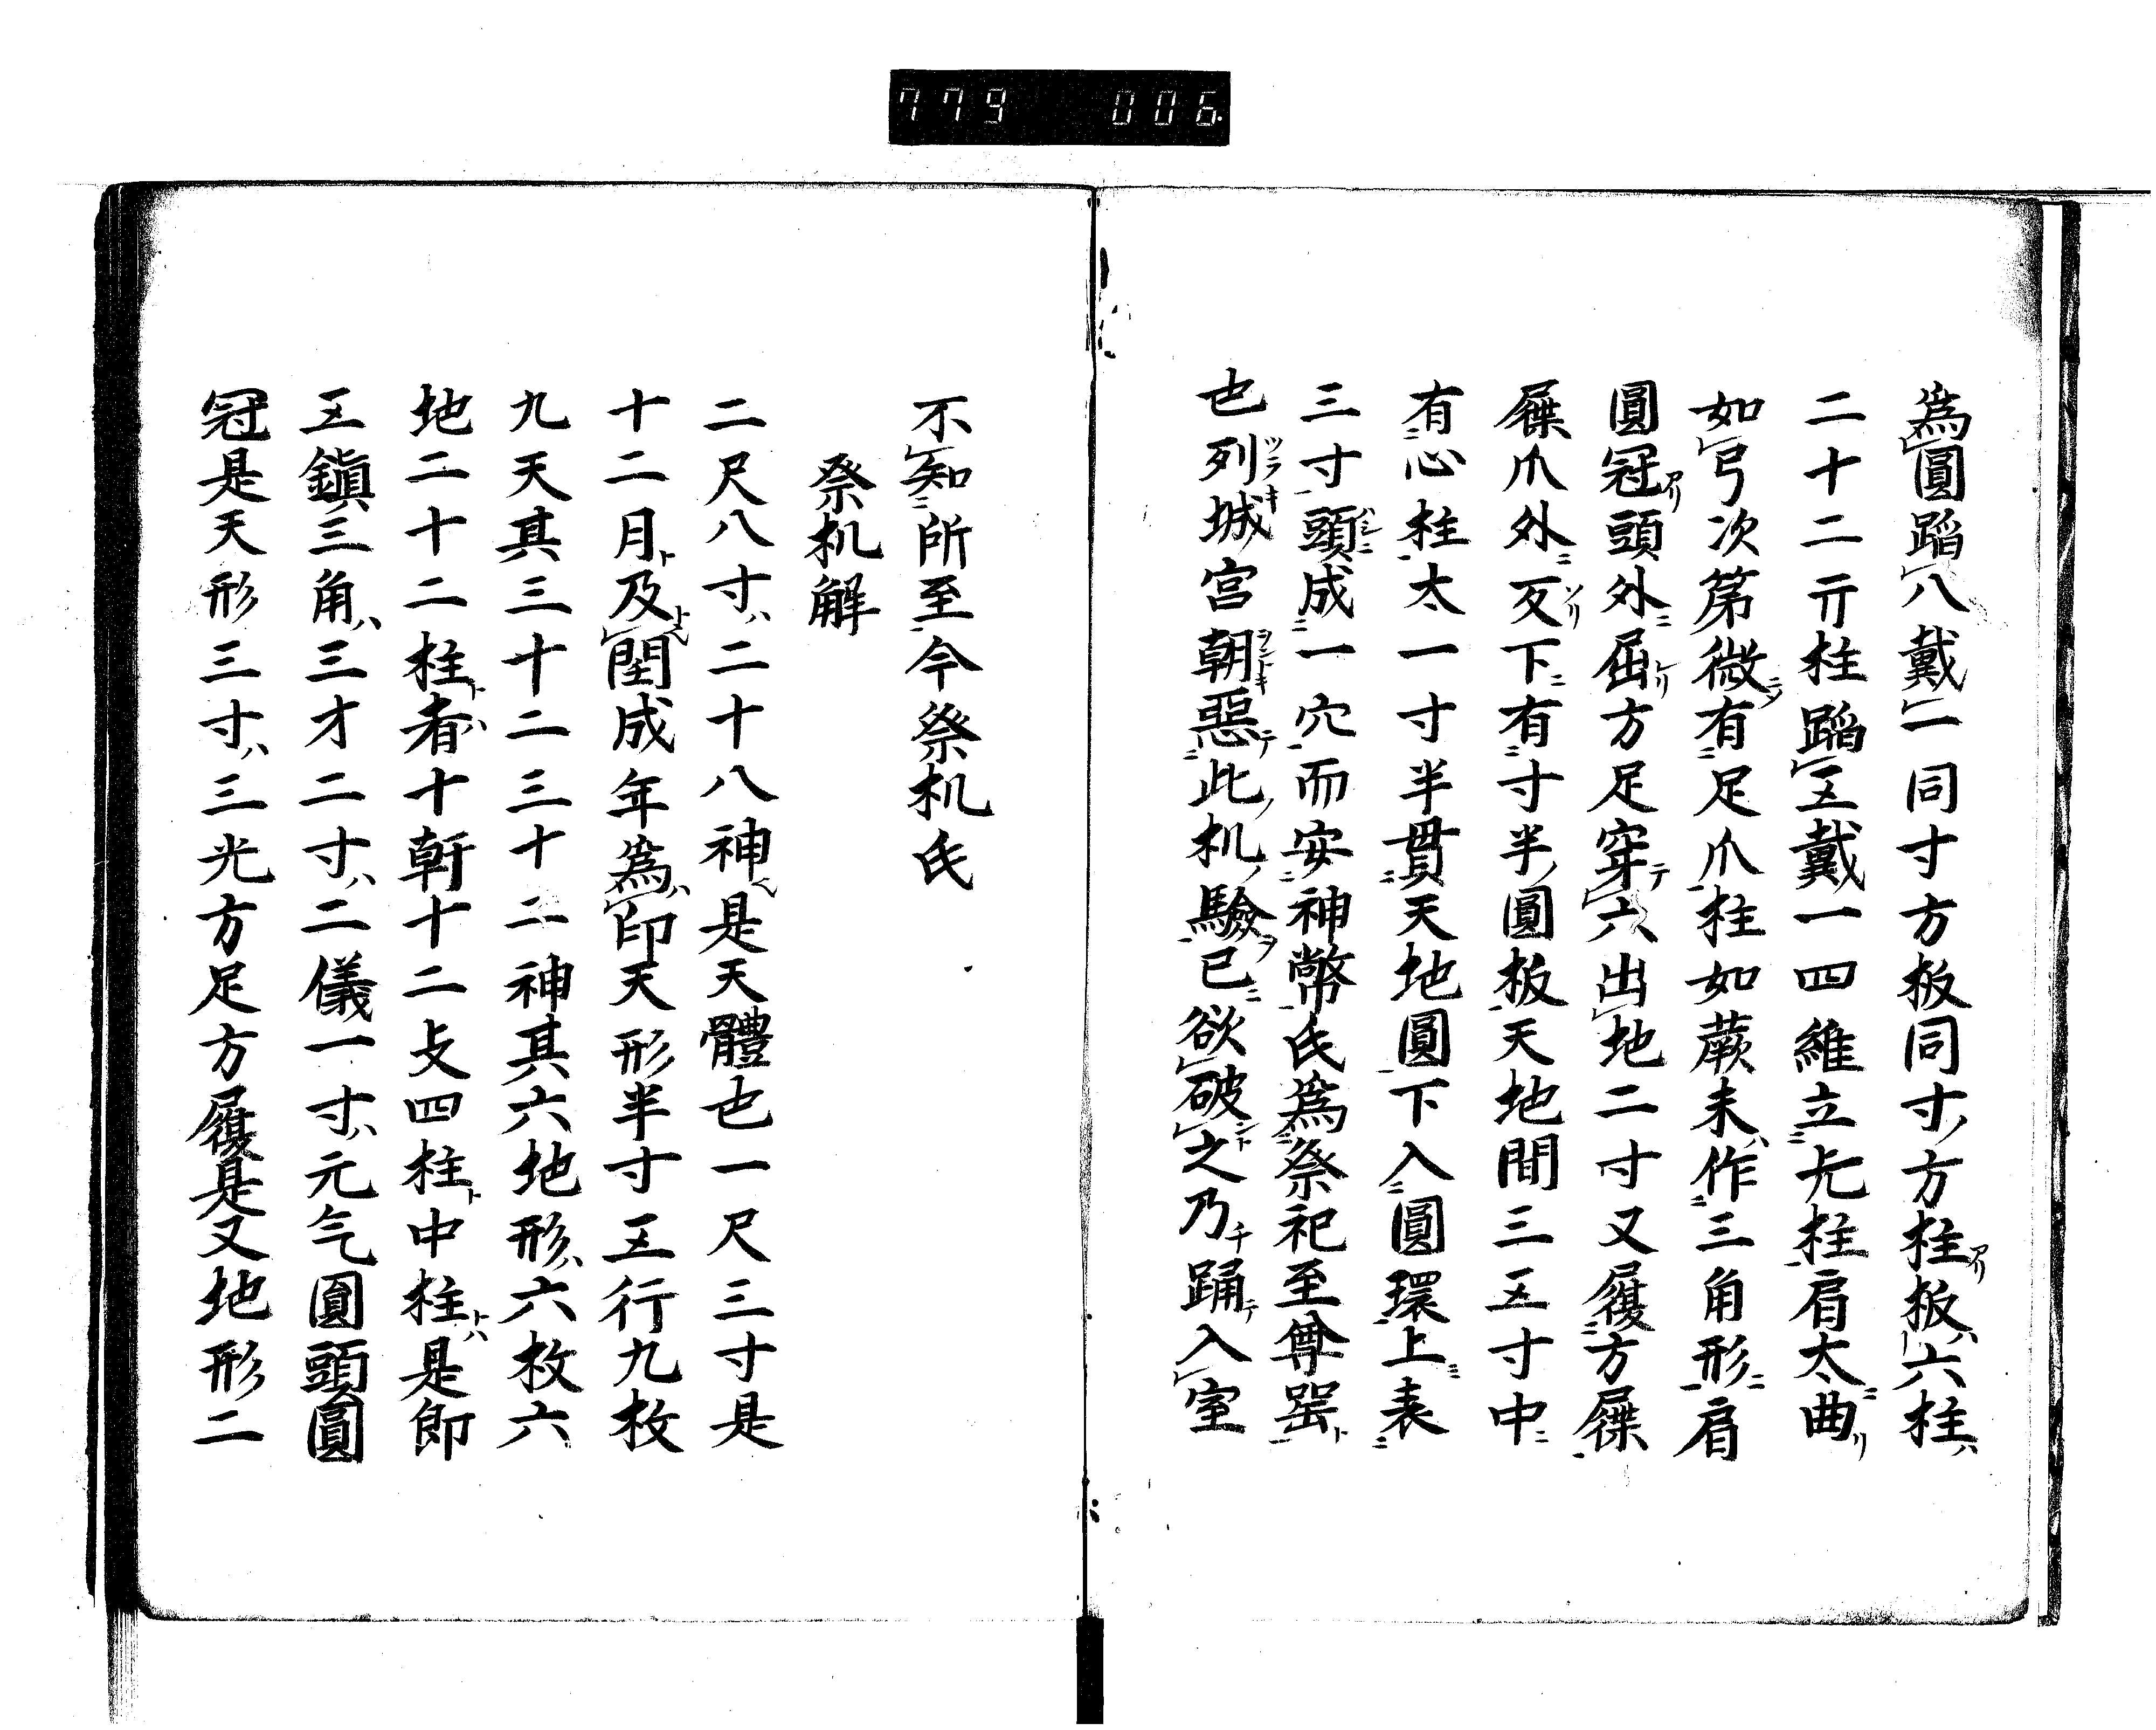 779 006.
為圓蹈八戴一同寸方板同寸方柱板六柱
二十二亓柱蹈五戴一四維立旡柱肩太曲
如弓次第微有足爪柱如蕨末作三角形肩
圓冠頭外屈方足穿六出地二寸又履方屧
屧爪外反下有寸半圓板天地間三五寸中
有心柱太一寸半貫天地圓下入圓環上表
三寸頭成一穴而安神幣氐為祭祀至尊器
也列城宮朝惡此机驗已欲破之乃踊入室
不知所至今祭机氐
祭机解
二尺八寸二十八神是天體也一尺三寸是
十二月及閏成年為印天形半寸五行九枚
九天其三十二三十二神其六地形六枚六
地二十二柱者十幹十二支四柱中柱是即
五鎮三角三才二寸二儀一寸元气圓頭圓
冠是天形三寸三光方足方履是又地形二